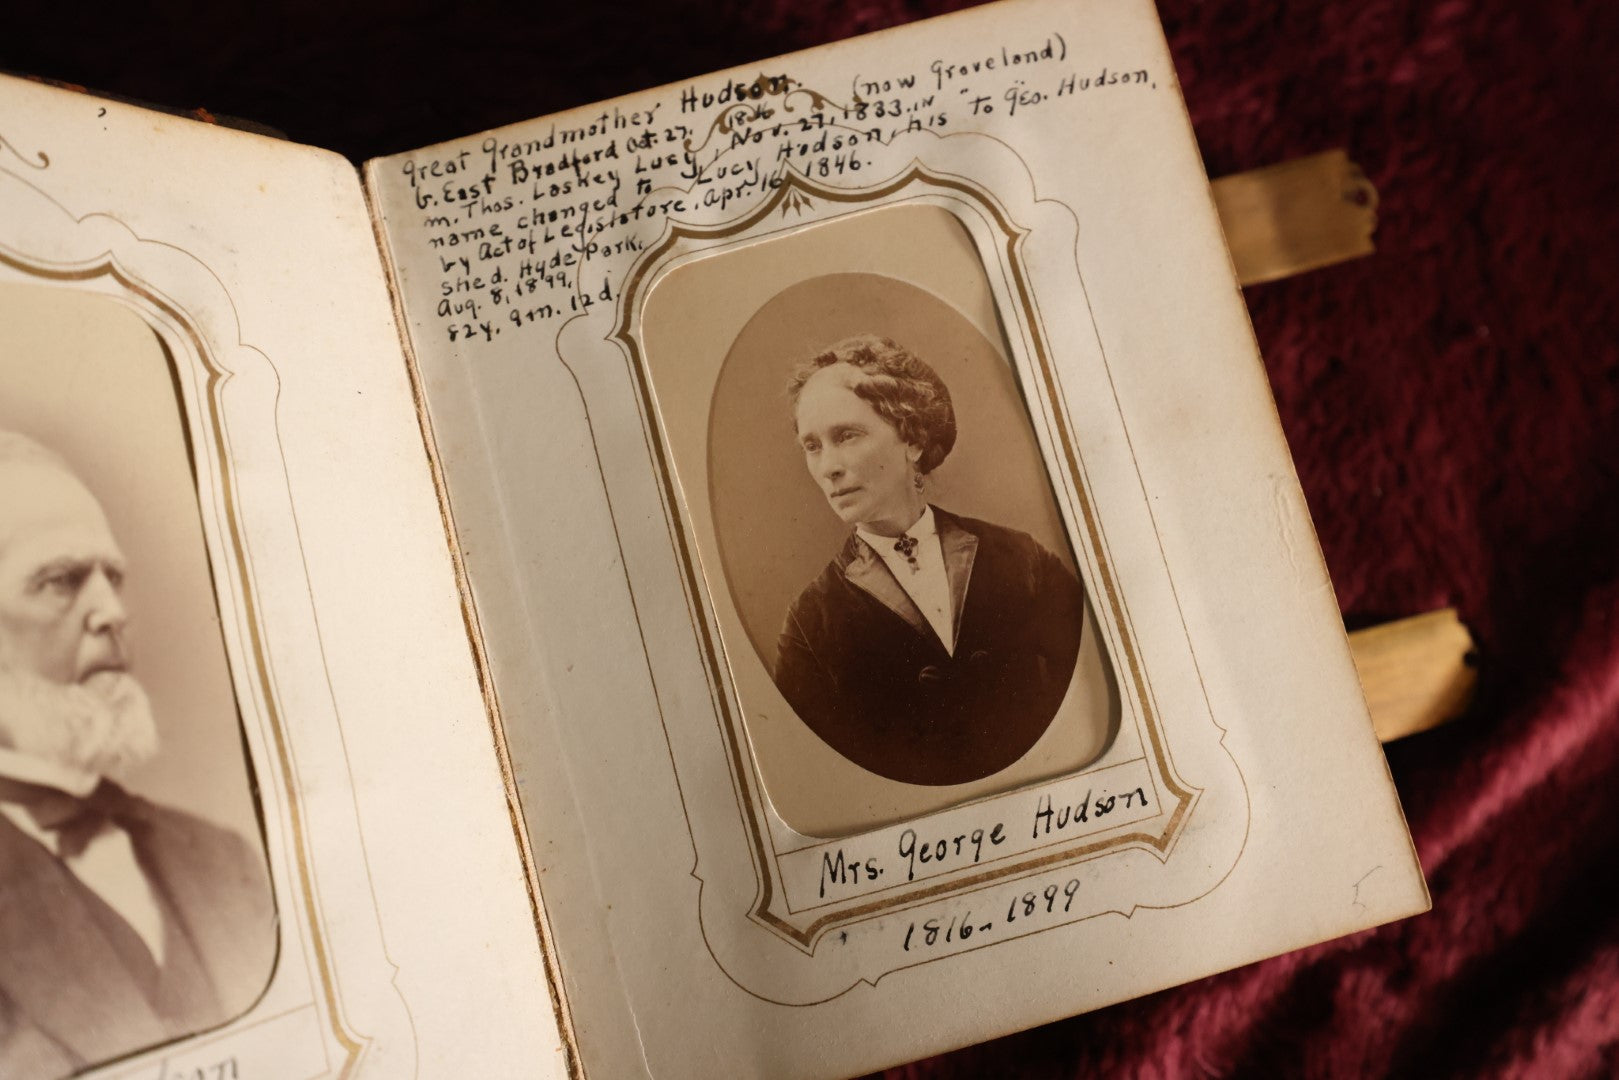 Great Grandmother Hudson.
b. East Bradford Oct. 27, 1816 (now Groveland)
m. Thos. Laskey Lucy, Nov. 27, 1833, in
name changed to Lucy Hudson, his to Geo. Hudson,
by Act of Legislature, Apr. 16, 1846.
She d. Hyde Park,
Aug. 8, 1899,
82y. 9m. 12d.
Mrs. George Hudson
1816-1899
5